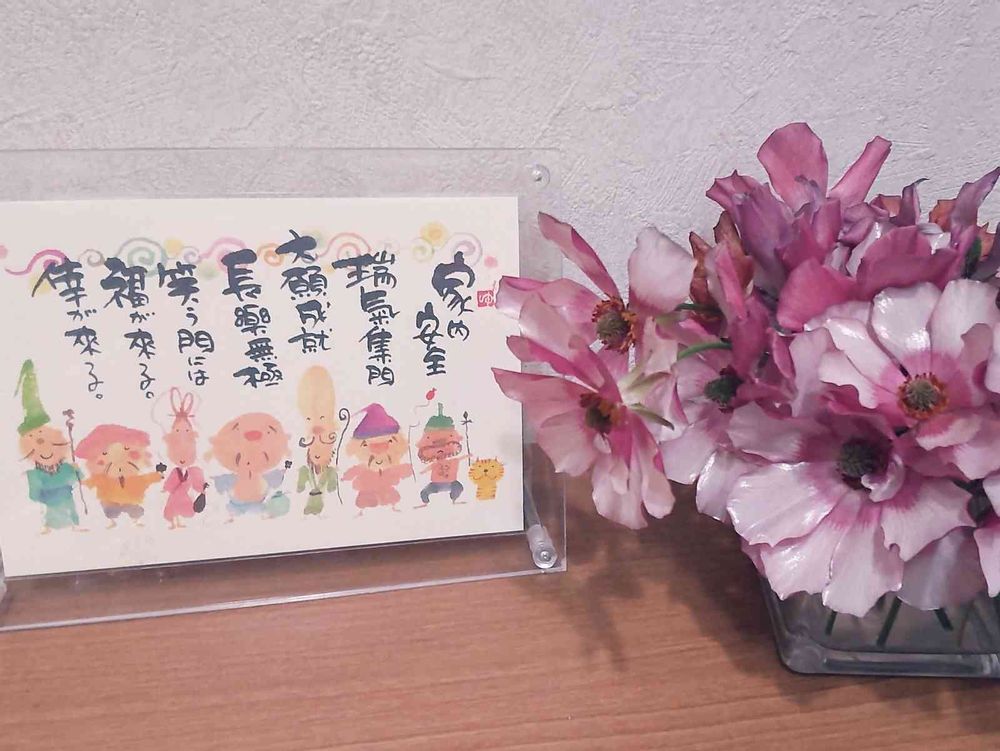 家内安全
瑞氣集門
大願成就
長樂無極
笑う門には
福が来る。
倖が来る。